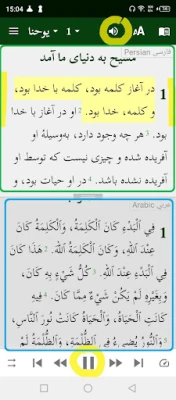 15:04
70
يوحنا 1
فارسی Persian
مسیح به دنیای ما آمد
1 در آغاز کلمه بود، کلمه با خدا بود،
و کلمه، خدا بود. 2 او در آغاز با خدا
بود. 3 هر چه وجود دارد، به‌وسیلهٔ او
آفریده شده و چیزی نیست که توسط او
آفریده نشده باشد. 4 در او حیات بود، و
Arabic عربي
1 فِي الْبَدْءِ كَانَ الْكَلِمَةُ، وَالْكَلِمَةُ كَانَ
عِنْدَ اللّٰهِ، وَكَانَ الْكَلِمَةُ اللّٰهَ. 2 هَذَا كَانَ
فِي الْبَدْءِ عِنْدَ اللّٰهِ. 3 كُلُّ شَيْءٍ بِهِ كَانَ،
وَبِغَيْرِهِ لَمْ يَكُنْ شَيْءٌ مِمَّا كَانَ. 4 فِيهِ
كَانَتِ الْحَيَاةُ، وَالْحَيَاةُ كَانَتْ نُورَ النَّاسِ،
5 وَالنُّورُ يُضِيءُ فِي الظُّلْمَةِ، وَالظُّلْمَةُ لَمْ